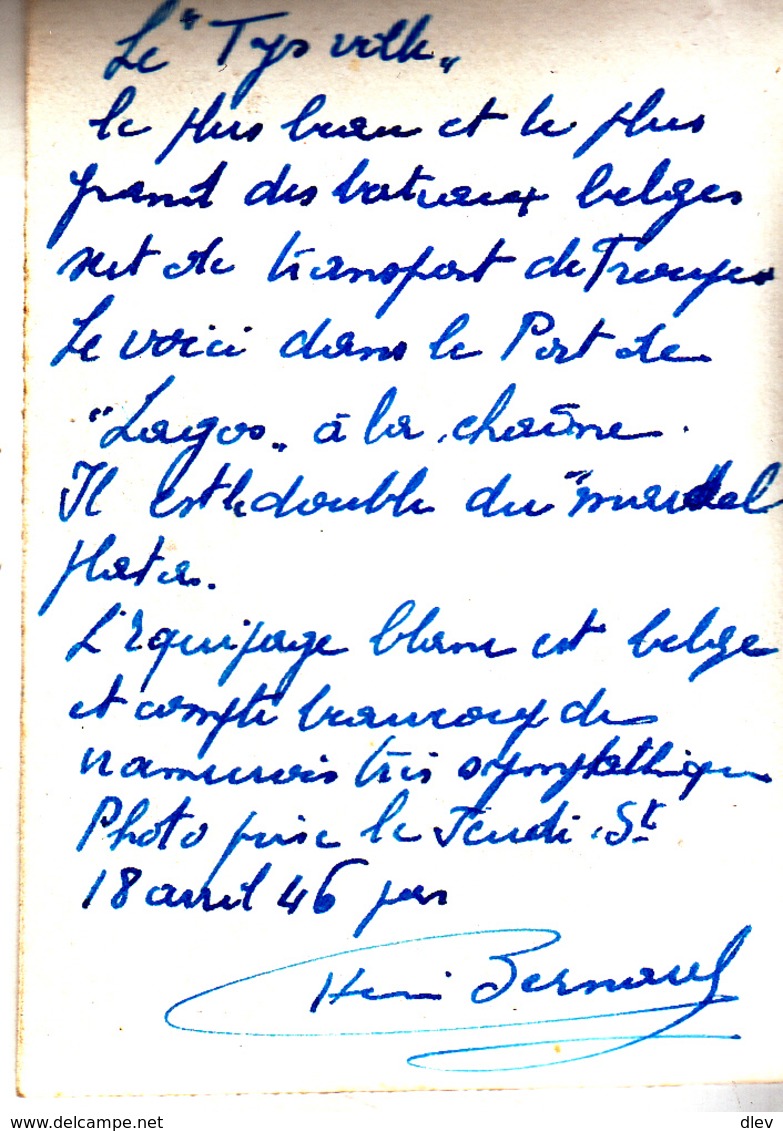 Le "Tysville"
le plus beau et le plus
grand des bateaux belges
sert de transport de Troupes
Le voici dans le Port de
"Lagos" à la chaîne.
Il est le double du "mar
plata.
L'Equipage blanc est belge
et compte beaucoup de
namurois très sympathique
Photo prise le Jeudi St
18 avril 46 par
Henri Bernard
www.delcampe.net
dlev